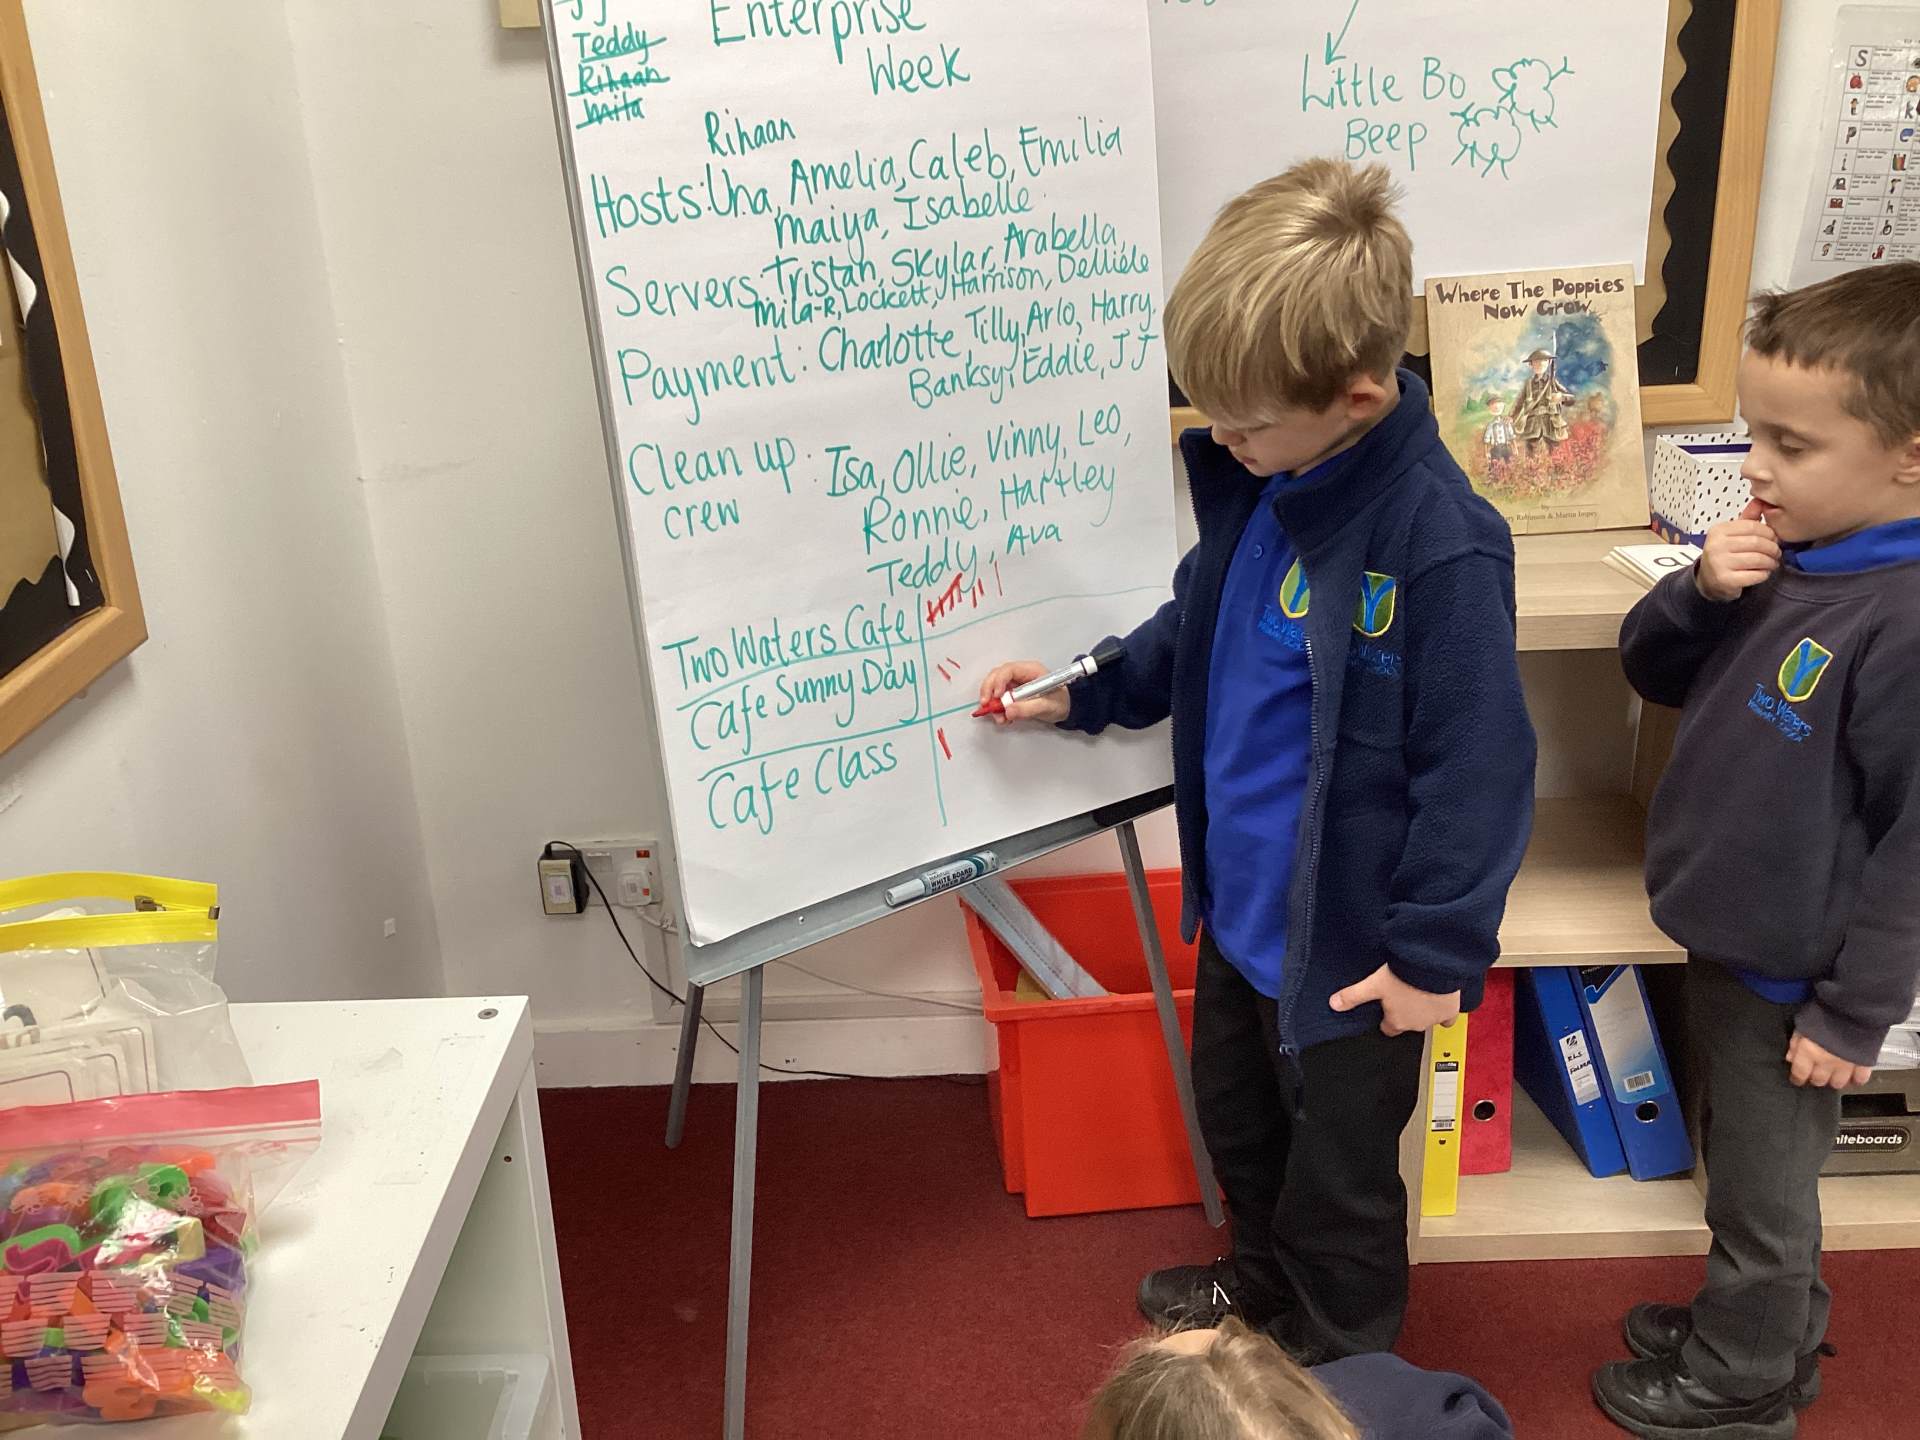 JJ
Teddy
Rihaan
Mila
Enterprise
Week
Rihaan
Hosts: Una, Amelia, Caleb, Emilia
Maiya, Isabelle.
Servers: Tristan, Skylar, Arabella,
Mila-R, Lockett, Harrison, Delliele
Payment: Charlotte, Tilly, Arlo, Harry.
Banksy, Eddie, JJ
Clean up: Isa, Ollie, Vinny, Leo,
crew Ronnie, Hartley
Teddy, Ava
Two Waters Cafe
Cafe Sunny Day
Cafe Class
Little Bo
Beep
Where The Poppies
Now Grow
by
Robinson & Martin Impey
Two Waters
Primary School
WHITE BOARD
MARKER
whiteboards